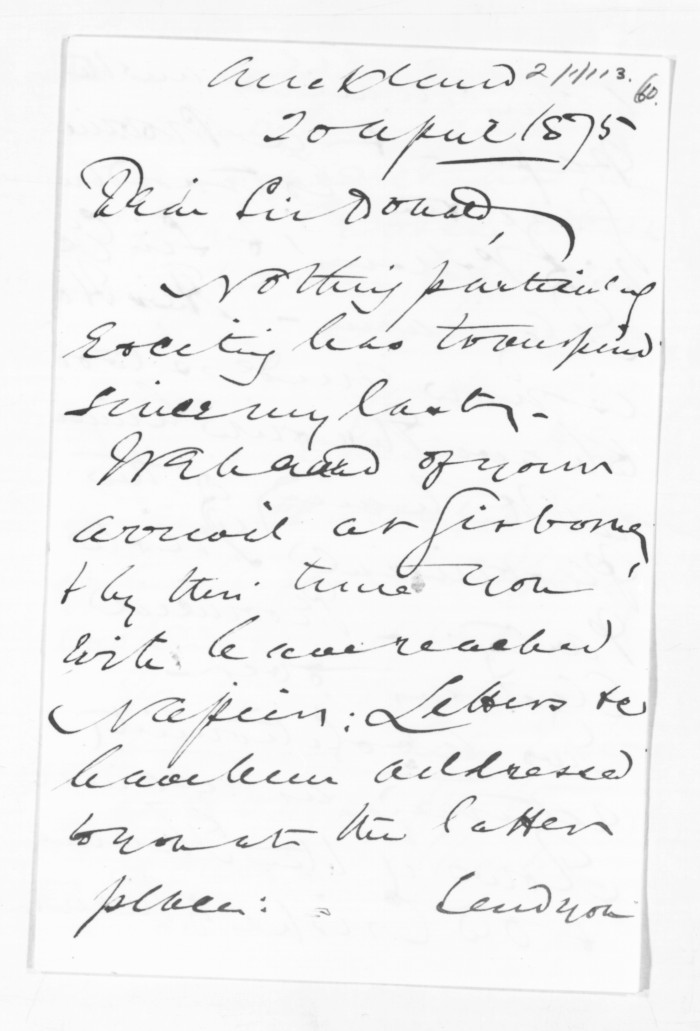 Auckland 2/1/113. 60.
20 April 1875
Dear Sir Donald,
Nothing particularly
Exciting has transpired
since my last.
We heard of your
arrival at Gisborne,
& by this time you
will have reached
Napier: Letters &c
have been addressed
to you at the latter
place: Send you